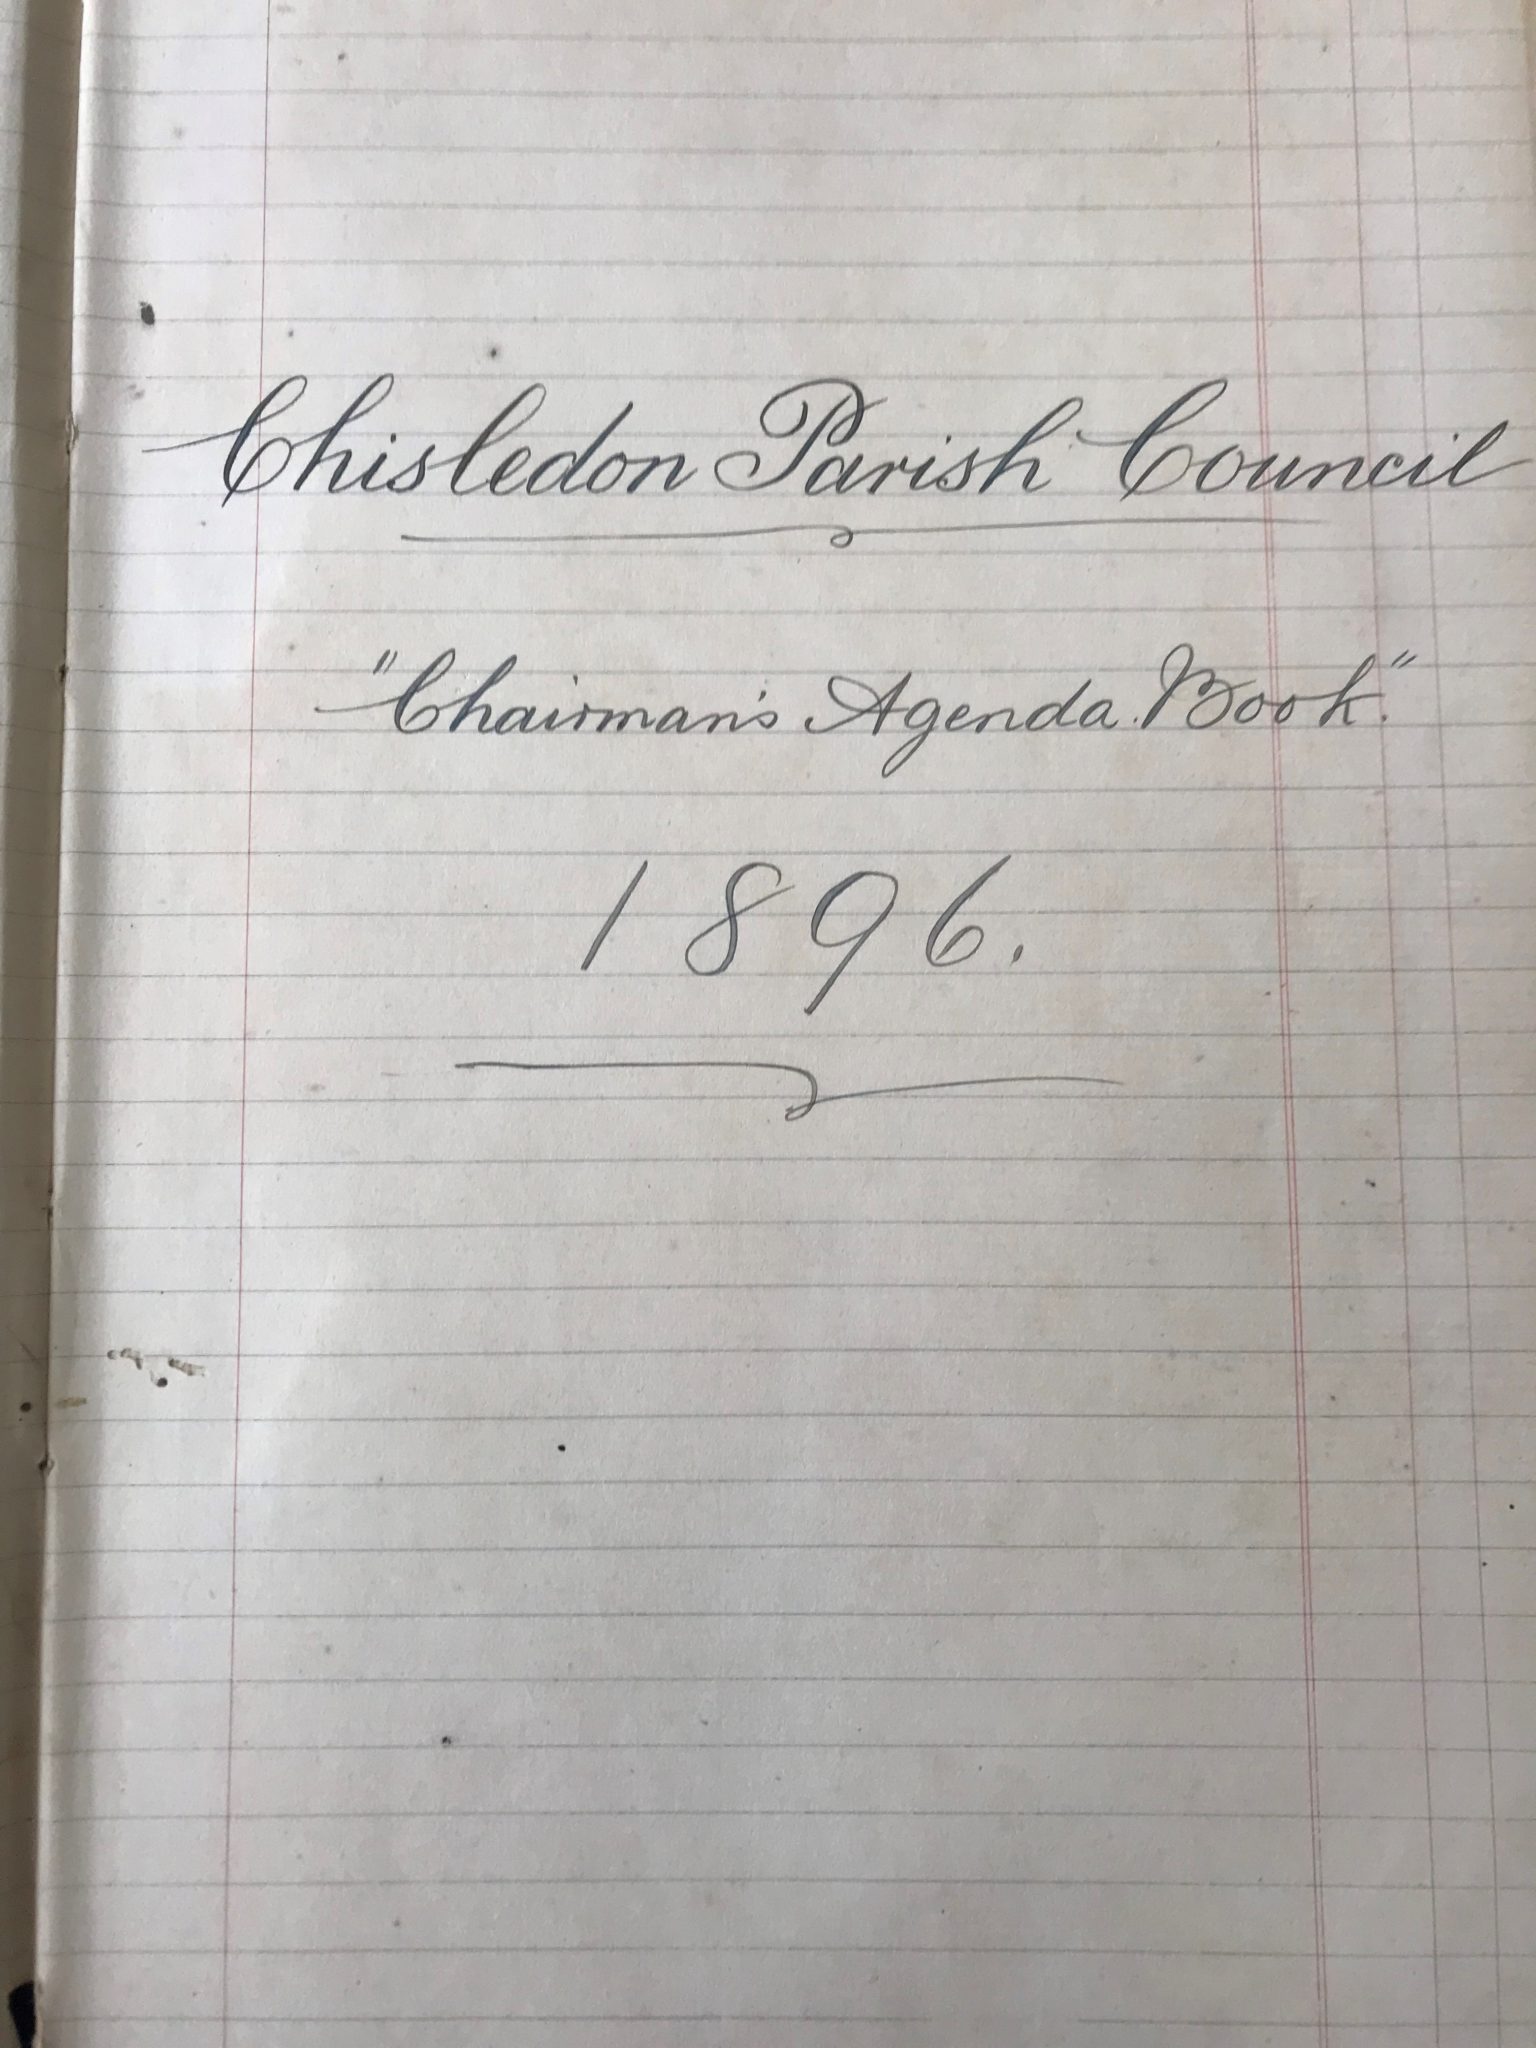 Chisledon Parish Council
"Chairman's Agenda Book."
1896.